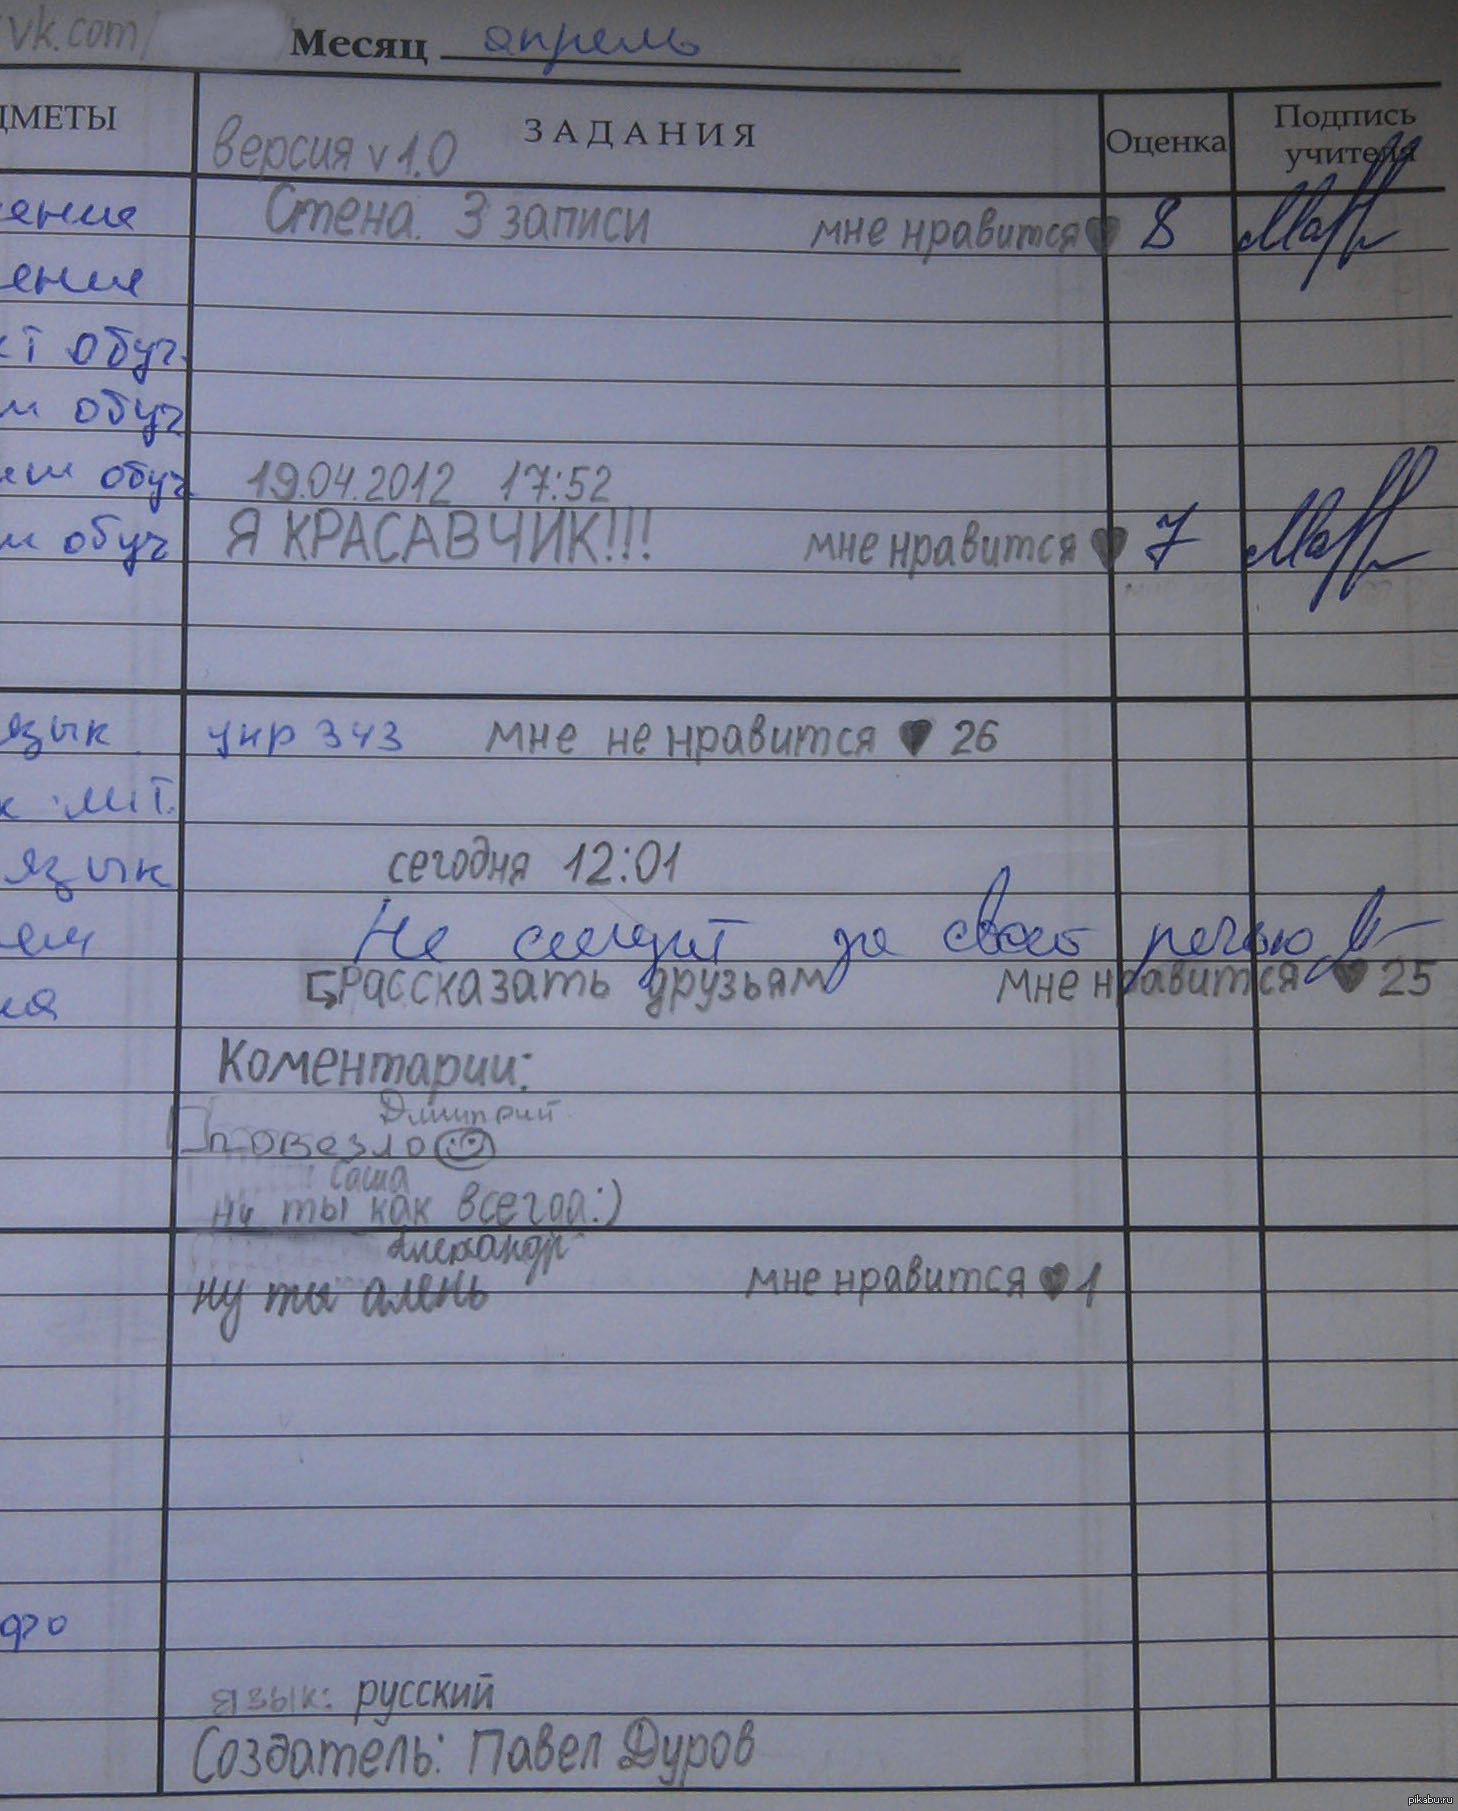 vk.com/ Месяц апрель
ДМЕТЫ ЗАДАНИЯ Оценка Подпись учителя
версия v 1.0
ения Стена. 3 записи мне нравится ♥ 8
ения
кт обуч.
м обуч
им обуч. 19.04.2012 17:52
м обуч Я КРАСАВЧИК!!! мне нравится ♥ 7
язык упр 343 мне не нравится ♥ 26
к лит.
язык сегодня 12:01
ем Не следит за своей речью
ия Рассказать друзьям мне нравится ♥ 25
Коментарии:
Дмитрий
повезло
Саша
ну ты как всегда:)
Александр
ну ты алень мне нравится ♥ 1
фго
язык: русский
Создатель: Павел Дуров
pikabu.ru